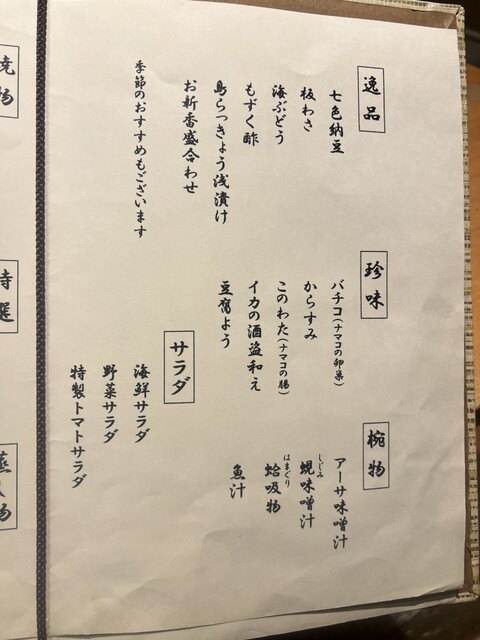 逸品
七色納豆
板わさ
海ぶどう
もずく酢
島らっきょう浅漬け
お新香盛合わせ
季節のおすすめもございます
珍味
バチコ(ナマコの卵巣)
からすみ
このわた(ナマコの腸)
イカの酒盗和え
豆腐よう
サラダ
海鮮サラダ
野菜サラダ
特製トマトサラダ
椀物
アーサ味噌汁
しじみ
蜆味噌汁
はまぐり
蛤吸物
魚汁
焼物
特選
蒸し物